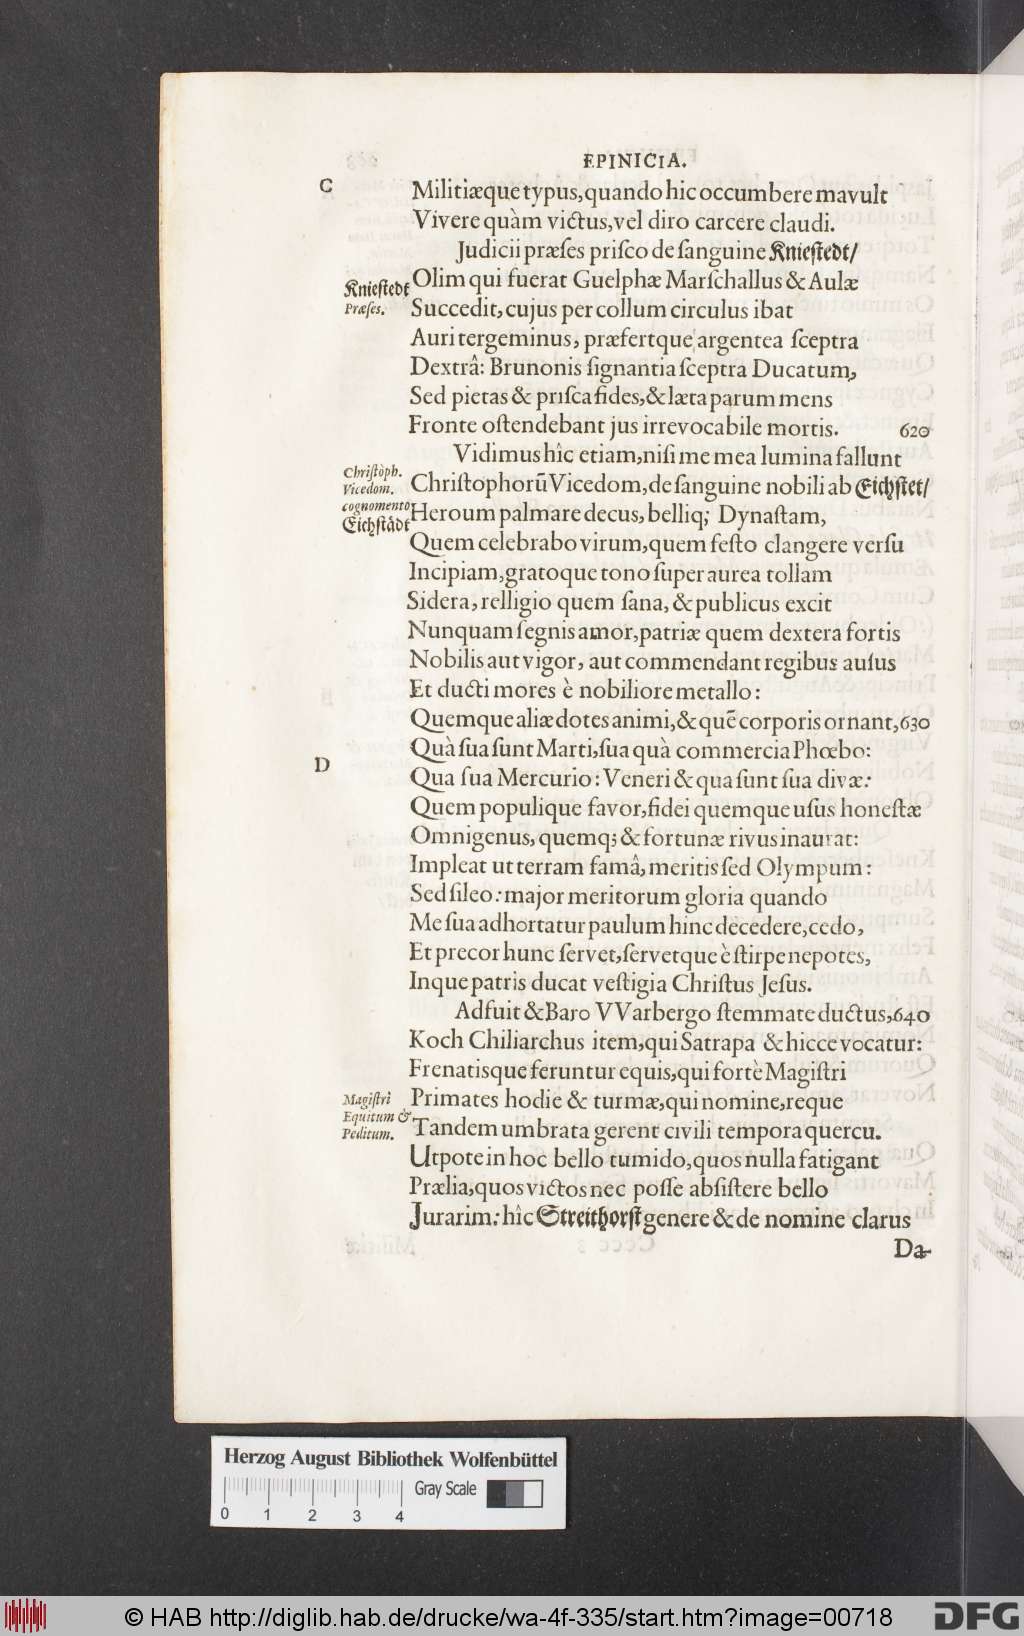 EPINICIA.
C
Militiæque typus, quando hic occumbere mavult
Vivere quàm victus, vel diro carcere claudi.
Judicii præses prisco de sanguine Kniestedt/
Kniestedt
Præses.
Olim qui fuerat Guelphæ Marschallus & Aulæ
Succedit, cujus per collum circulus ibat
Auri tergeminus, præfertque argentea sceptra
Dextrâ: Brunonis signantia sceptra Ducatum,
Sed pietas & prisca fides, & læta parum mens
Fronte ostendebant jus irrevocabile mortis. 620
Vidimus hîc etiam, nisi me mea lumina fallunt
Christoph.
Vicedom.
cognomento
Eichstådt
Christophorū Vicedom, de sanguine nobili ab Eichstet/
Heroum palmare decus, belliq; Dynastam,
Quem celebrabo virum, quem festo clangere versu
Incipiam, gratoque tono super aurea tollam
Sidera, relligio quem sana, & publicus excit
Nunquam segnis amor, patriæ quem dextera fortis
Nobilis aut vigor, aut commendant regibus ausus
Et ducti mores è nobiliore metallo:
Quemque aliæ dotes animi, & quē corporis ornant, 630
Quà sua sunt Marti, sua quà commercia Phœbo:
D
Qua sua Mercurio: Veneri & qua sunt sua divæ:
Quem populique favor, fidei quemque usus honestæ
Omnigenus, quemq; & fortunæ rivus inaurat:
Impleat ut terram famâ, meritis sed Olympum:
Sed sileo: major meritorum gloria quando
Me sua adhortatur paulum hinc decedere, cedo,
Et precor hunc servet, servetque è stirpe nepotes,
Inque patris ducat vestigia Christus Jesus.
Adfuit & Baro VVarbergo stemmate ductus, 640
Koch Chiliarchus item, qui Satrapa & hicce vocatur:
Frenatisque feruntur equis, qui fortè Magistri
Magistri
Equitum &
Peditum.
Primates hodie & turmæ, qui nomine, reque
Tandem umbrata gerent civili tempora quercu.
Utpote in hoc bello tumido, quos nulla fatigant
Prælia, quos victos nec posse absistere bello
Jurarim: hîc Streithorst genere & de nomine clarus
Da-
Herzog August Bibliothek Wolfenbüttel
Gray Scale
0 1 2 3 4
© HAB http://diglib.hab.de/drucke/wa-4f-335/start.htm?image=00718
DFG